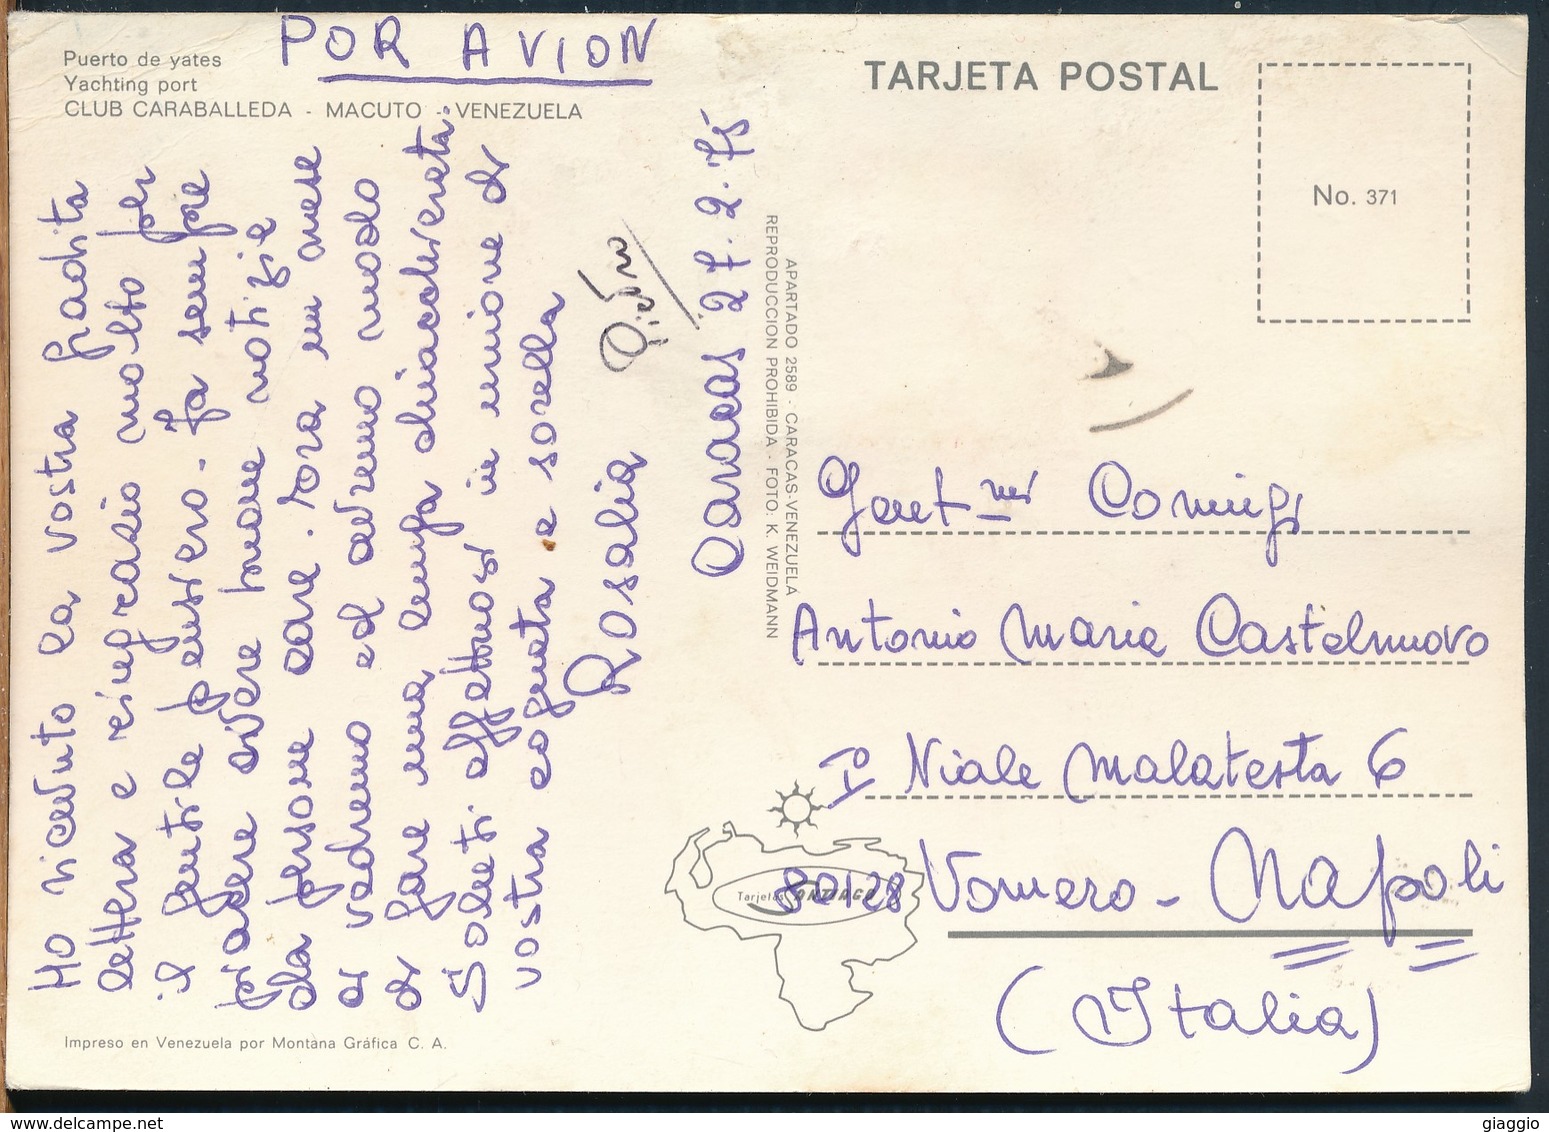 POR AVION
Puerto de yates
Yachting port
CLUB CARABALLEDA - MACUTO - VENEZUELA
Ho ricevuto la vostra gradita
lettera e ringrazio molto per
il gentile pensiero - fa sempre
piacere avere buone notizie
da persone care. Tra un mese
ci vedremo ed avremo modo
di fare una lunga chiacchierata.
Saluti affettuosi in unione di
vostra cognata e sorella
Rosalia
Caracas 27.2.75
APARTADO 2589 - CARACAS-VENEZUELA
REPRODUCCION PROHIBIDA - FOTO: K. WEIDMANN
TARJETA POSTAL
No. 371
Gent.mi Coniugi
Antonio Maria Castelnuovo
Iº Viale Malatesta 6
80128 Vomero - Napoli
(Italia)
Tarjetas
Impreso en Venezuela por Montana Gráfica C. A.
giaggio
delcampe.net